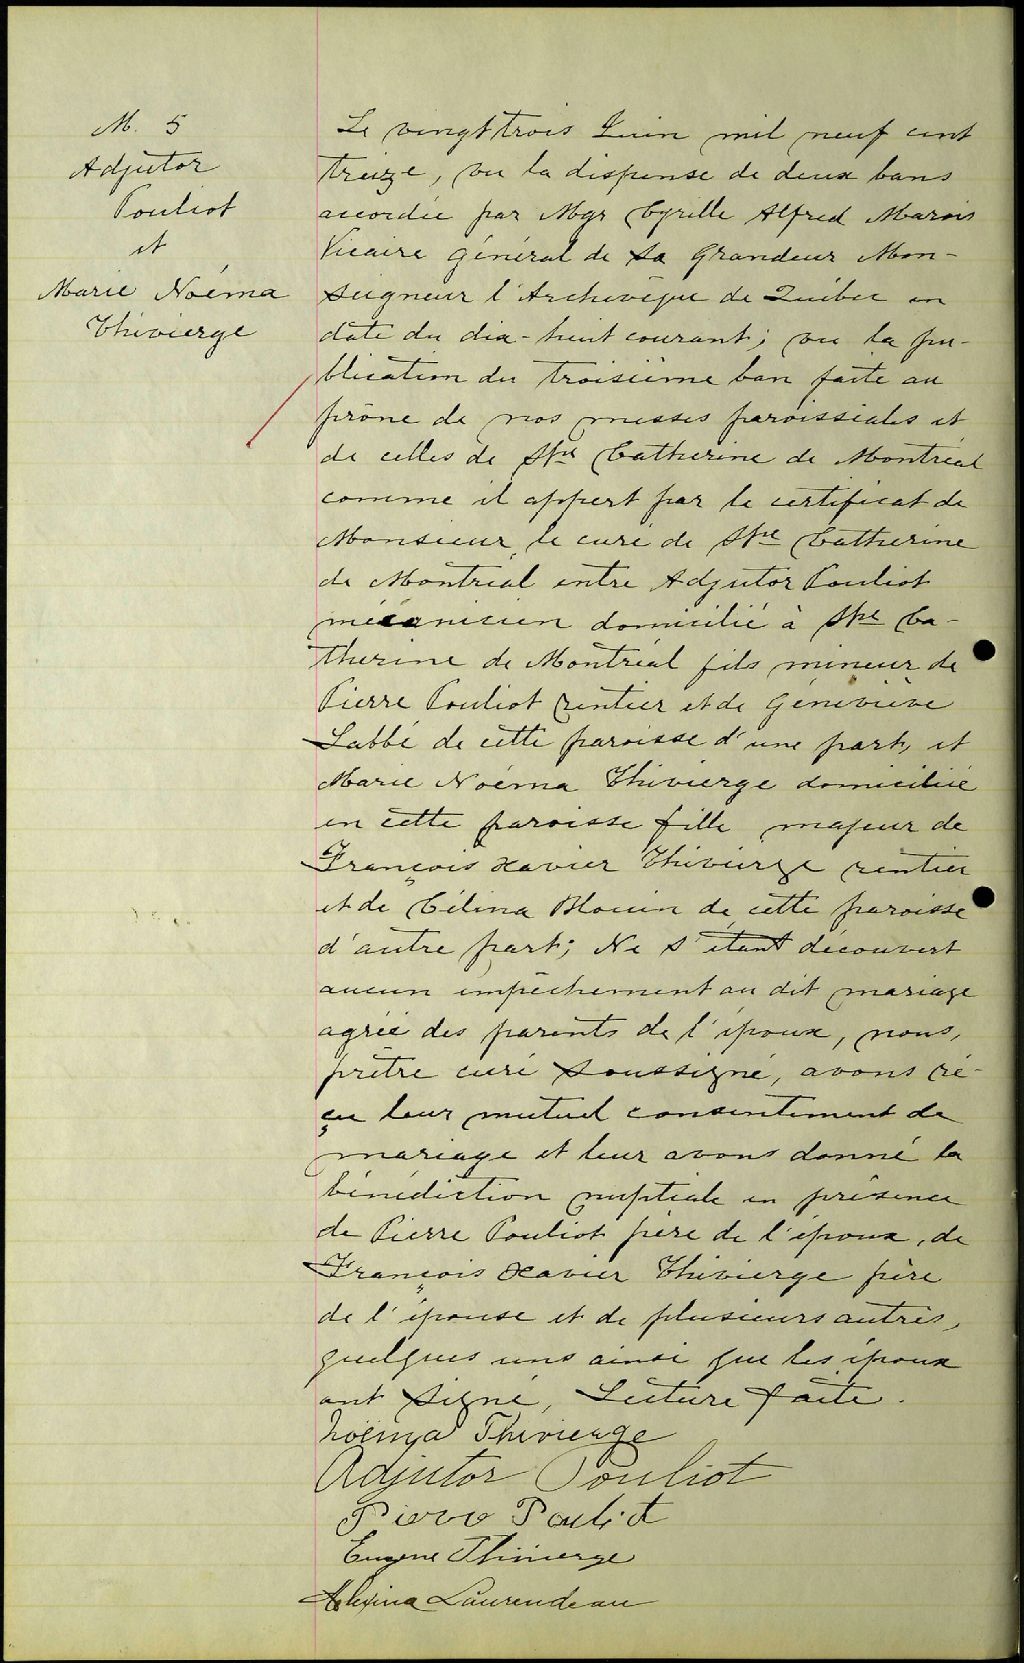 M. 5
Adjutor
Pouliot
et
Marie Noéma
Thivierge
Le vingt trois Juin mil neuf cent
treize, vu la dispense de deux bans
accordée par Mgr Cyrille Alfred Marois
Vicaire général de Sa Grandeur Mon-
seigneur l'Archevêque de Québec en
date du dix-huit courant; vu la pu-
blication du troisième ban faite au
prône de nos messes paroissiales et
de celles de Ste Catherine de Montréal
comme il appert par le certificat de
Monsieur le curé de Ste Catherine
de Montréal entre Adjutor Pouliot
mécanicien domicilié à Ste Ca-
therine de Montréal fils mineur de
Pierre Pouliot rentier et de Géneviève
Labbé de cette paroisse d'une part, et
Marie Noéma Thivierge domiciliée
en cette paroisse fille majeur de
François Xavier Thivierge rentier
et de Célina Blouin de cette paroisse
d'autre part; Ne s'étant découvert
aucun empêchement au dit mariage
agréé des parents de l'époux, nous,
prêtre curé soussigné, avons ré-
çu leur mutuel consentement de
mariage et leur avons donné la
bénédiction nuptiale en présence
de Pierre Pouliot père de l'époux, de
François Xavier Thivierge père
de l'épouse et de plusieurs autres,
quelques uns ainsi que les époux
ont signé, Lecture faite.
Noëmya Thivierge
Adjutor Pouliot
Pierre Pouliot
Eugene Thivierge
Alexina Laurendeau